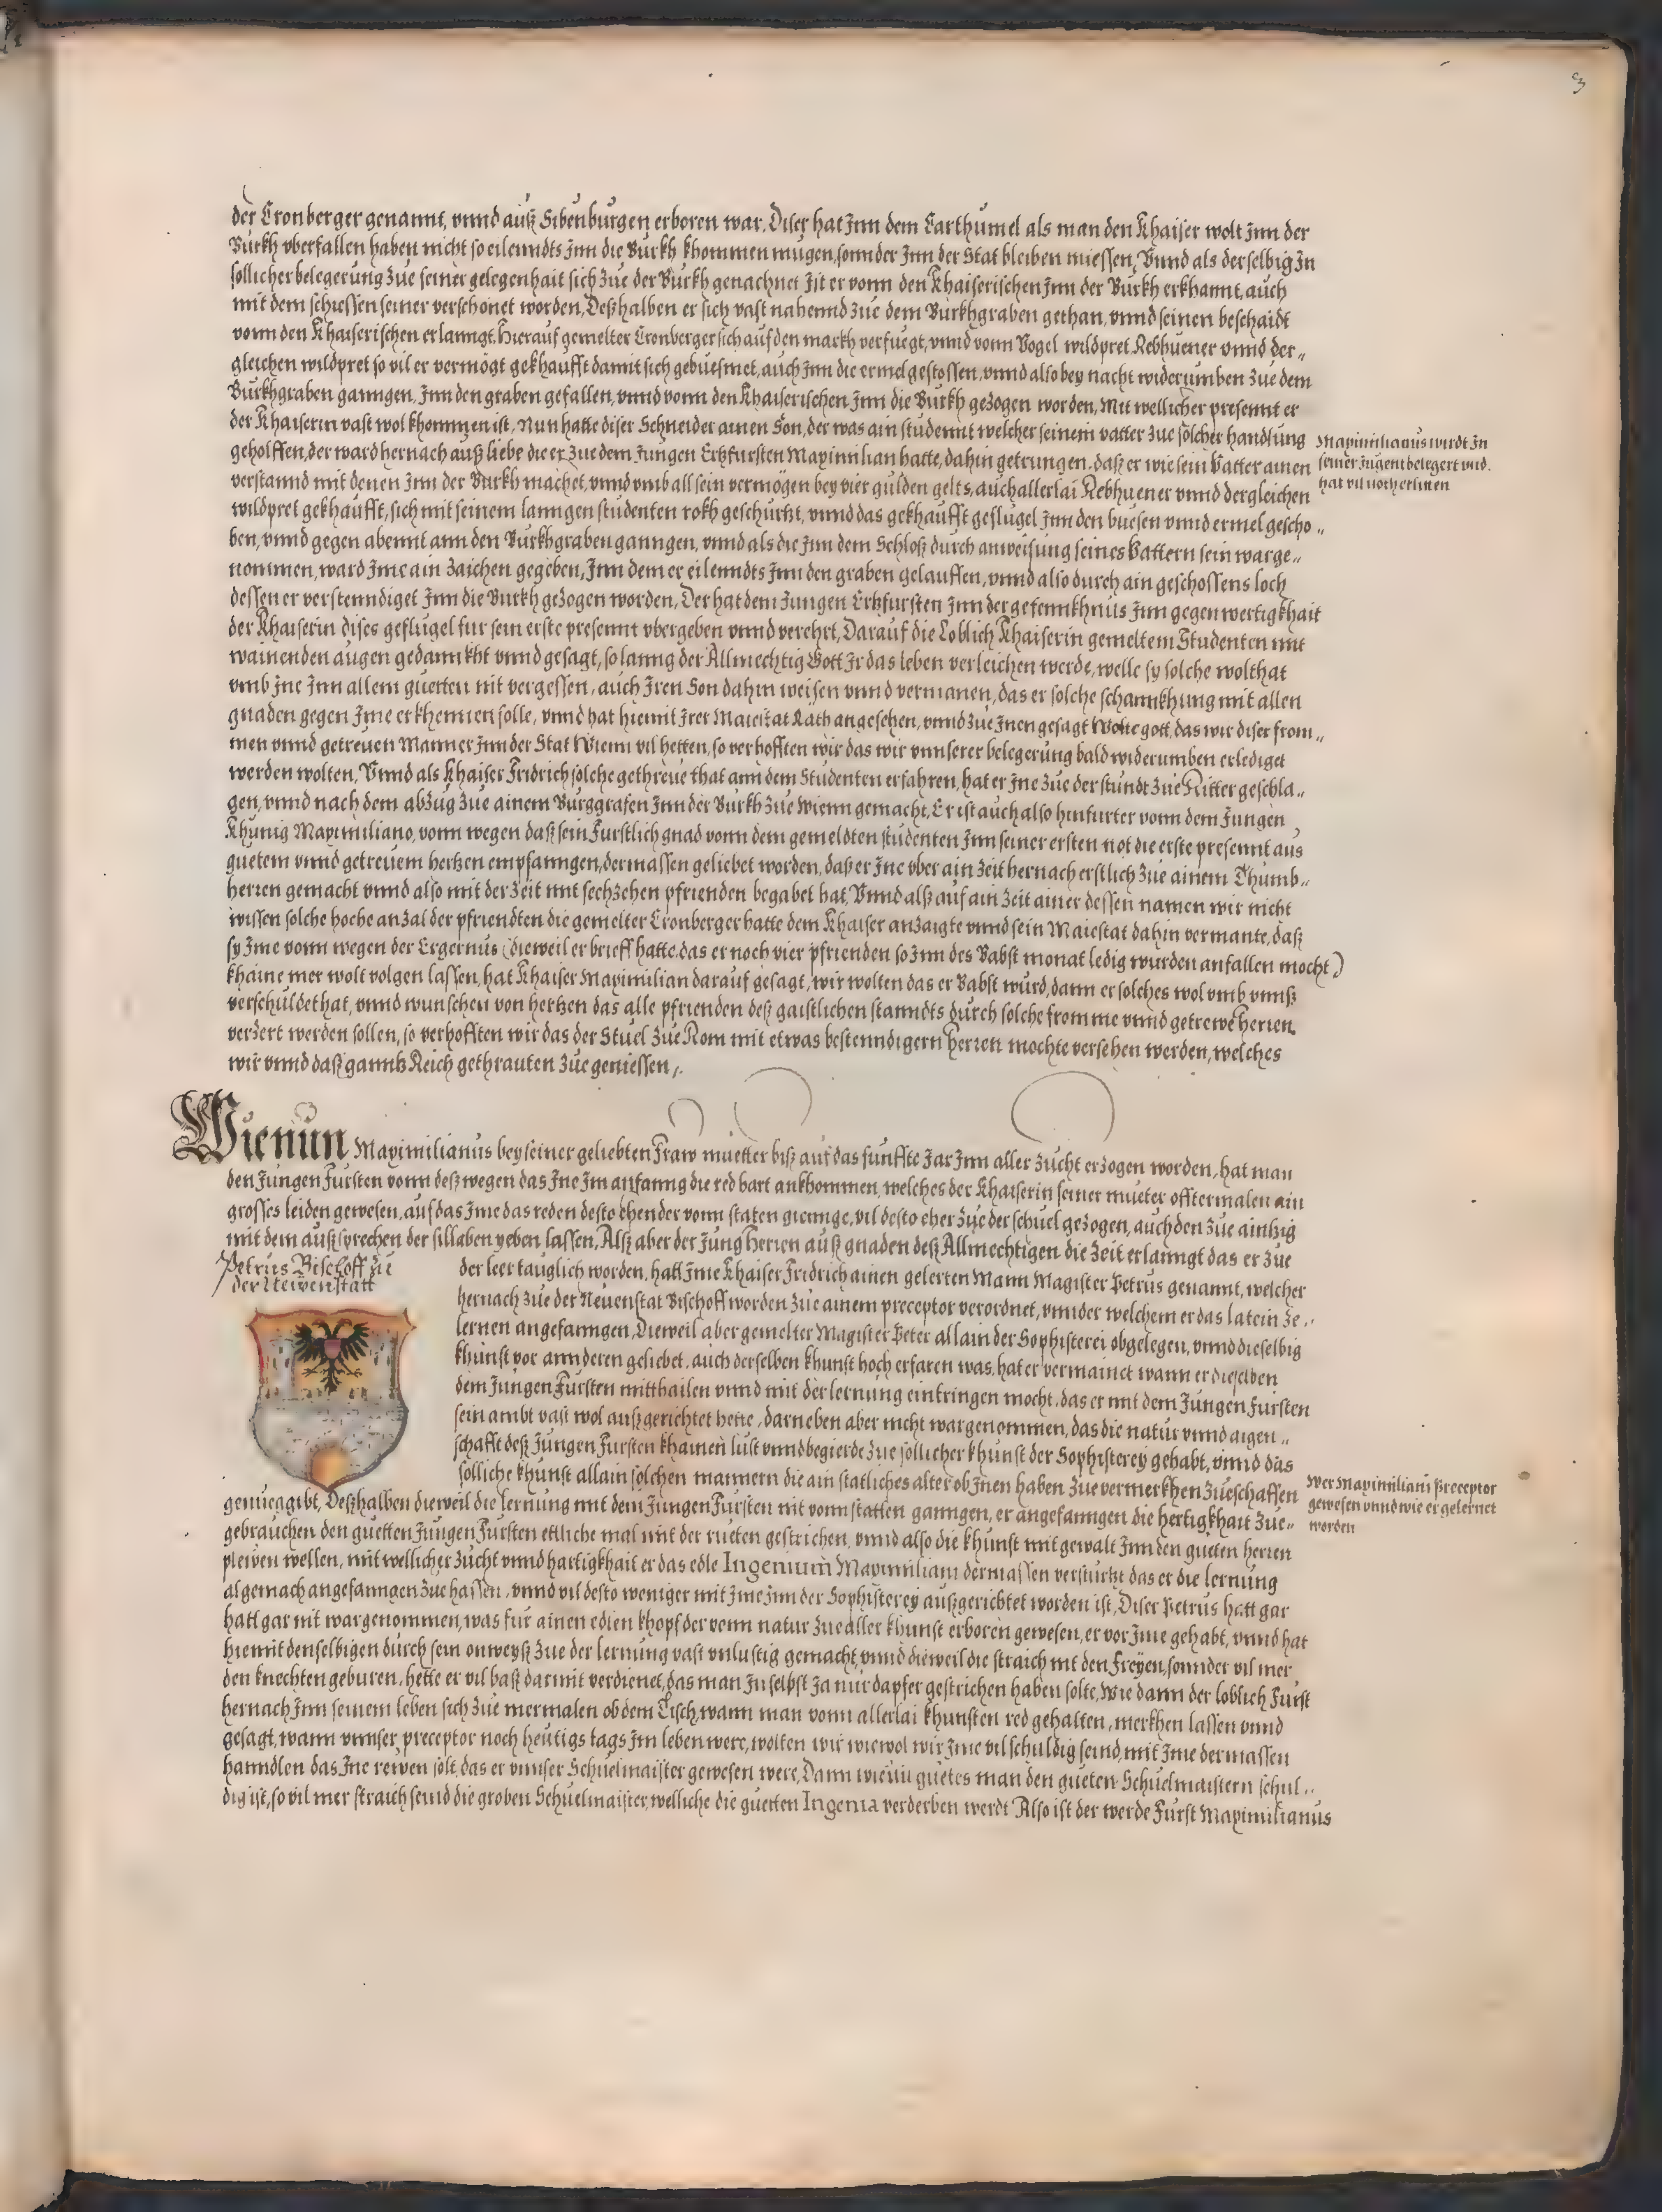 3
der Cronberger genannt, vnnd auß Sibenburgen erboren war. Diser hat Jnn dem Carthumel als man den Khaiser wolt Jnn der
Burkh vberfallen haben nicht so eilenndts Jnn die Burkh khommen mügen, sonnder Jnn der Stat bleiben miessen, Vnnd als derselbig Jn
sollicher belegerung zue seiner gelegenhait sich zue der Burkh genachnet Jst er vonn den Khaiserischen Jnn der Burkh erkhannt, auch
mit dem schiessen seiner verschonet worden, Deßhalben er sich vast nahennd zue dem Burkhgraben gethan, vnnd seinen beschaidt
vonn den Khaiserischen erlanngt. Hierauf gemelter Cronberger sich auf den markh verfuegt, vnnd vonn Vogel wildpret Rebhuener vnnd der„
gleichen wildpret so vil er vermögt gekhaufft damit sich gebuesmet, auch Jnn die ermel gestossen, vnnd also bey nacht widerumben zue dem
Burkhgraben ganngen, Jnn den graben gefallen, vnnd vonn den Khaiserischen Jnn die Burkh gezogen worden, Mit wellicher presennt er
der Khaiserin vast wol khommen ist, Nun hatte diser Schneider ainen Son, der was ain studennt welcher seinem vatter zue solcher handlung
geholffen, der ward hernach auß liebe die er zue dem Jungen Ertzfursten Maximilian hatte, dahin getrungen, daß er wie sein Vatter ainen
verstannd mit denen Jnn der Burkh machet, vnnd vmb all sein vermögen bey vier gulden gelts, auch allerlai Rebhuener vnnd dergleichen
wildpret gekhaufft, sich mit seinem lanngen studenten rokh geschurtzt, vnnd das gekhaufft geflugel Jnn den buesen vnnd ermel gescho„
ben, vnnd gegen abennt ann den Burkhgraben ganngen, vnnd als die Jnn dem Schloß durch anweisung seines Vattern sein warge„
nommen, ward Jme ain zaichen gegeben, Jnn dem er eilenndts Jnn den graben gelauffen, vnnd also durch ain geschossens loch
dessen er verstenndiget Jnn die Burkh gezogen worden, Der hat dem Jungen Ertzfursten Jnn der gefennkhnus Jnn gegenwertigkhait
der Khaiserin dises geflugel fur sein erste presennt vbergeben vnnd verehrt, Darauf die Loblich Khaiserin gemeltem Studenten mit
wainenden augen gedannkht vnnd gesagt, so lanng der Allmechtig Gott Jr das leben verleichen werde, welle sy solche wolthat
vmb Jne Jnn allem guetten nit vergessen, auch Jren Son dahin weisen vnnd vermanen, das er solche schannkhung mit allen
gnaden gegen Jme erkhennen solle, vnnd hat hiemit Jrer Maiestat Räth angesehen, vnnd zue Jnen gesagt Wolte gott, das wir diser from„
men vnnd getreuen Manner Jnn der Stat Wienn vil hetten, so verhofften wir das wir vnnserer belegerung bald widerumben erlediget
werden wolten, Vnnd als Khaiser Fridrich solche gethreue that ann dem Studenten erfahren, hat er Jne zue der stundt zue Ritter geschla„
gen, vnnd nach dem abzug zue ainem Burggrafen Jnn der Burkh zue Wienn gemacht, Er ist auch also hinfurter vonn dem Jungen
Khunig Maximiliano, vonn wegen daß sein Furstlich gnad vonn dem gemeldten studenten Jnn seiner ersten not die erste presennt aus
guetem vnnd getreuem hertzen empfanngen, dermassen geliebet worden, daß er Jne vber ain Zeit hernach erstlich zue ainem Thumb„
herren gemacht vnnd also mit der Zeit mit sechzehen pfrienden begabet hat, Vnnd alß auf ain Zeit ainer dessen namen wir nicht
wissen solche hoche anzal der pfriendten die gemelter Cronberger hatte dem Khaiser anzaigte vnnd sein Maiestat dahin vermante, daß
sy Jme vonn wegen der Ergernus (dieweil er brieff hatte, das er noch vier pfrienden so Jnn des Babst monat ledig wurden anfallen mocht)
khaine mer wolt volgen lassen, hat Khaiser Maximilian darauf gesagt, wir wolten das er Babst wurd, dann er solches wol vmb vnnß
verschuldet hat, vnnd wunschen von hertzen das alle pfrienden deß gaistlichen stanndts durch solche fromme vnnd getrewe herren
verzert werden sollen, so verhofften wir das der Stuel zue Rom mit etwas bestenndigern herren mochte versehen werden, welches
wir vnnd daß ganntz Reich gethrauten zue geniessen,.
Maximilianus wirdt Jn
seiner Jugent belegert vnd
hat vil noth erlitten
Wienun Maximilianus bey seiner geliebten Fraw muetter biß auf das funffte Jar Jnn aller Zucht erzogen worden, hat man
den Jungen Fursten vonn deß wegen das Jne Jm anfanng die red hart ankhommen, welches der Khaiserin seiner mueter offtermalen ain
grosses leiden gewesen, auf das Jme das reden desto ehender vonn staten gienge, vil desto eher zue der schuel gezogen, auch den zue aintzig
mit dem außsprechen der sillaben yeben lassen, Alß aber der Jung Herren auß gnaden deß Allmechtigen die Zeit erlanngt das er zue
Petrus Bischoff zu
der Newenstatt
der leer tauglich worden, hatt Jme Khaiser Fridrich ainen gelerten Mann Magister Petrus genannt, welcher
hernach zue der Neuenstat Bischoff worden zue ainem preceptor verordnet, vnnder welchem er das latein ze„
lernen angefanngen, Dieweil aber gemelter Magister Peter allain der Sophisterei obgelegen, vnnd dieselbig
khunst vor annderen geliebet, auch derselben khunst hoch erfaren was, hat er vermainet wann er dieselben
dem Jungen Fursten mitthailen vnnd mit der lernung eintringen mocht, das er mit dem Jungen Fursten
sein ambt vast wol außgerichtet hette, darneben aber nicht wargenommen, das die natur vnnd aigen„
schafft deß Jungen Fursten khainen lust vnnd begierde zue sollicher khunst der Sophisterey gehabt, vnnd das
solliche khunst allain solchen mannern die ain statliches alter ob Jnen haben zue vermerkhen zueschaffen
genueg gibt, Deßhalben dieweil die lernung mit dem Jungen Fursten nit vonn statten ganngen, er angefanngen die hertigkhait zue„
gebrauchen den guetten Jungen Fursten ettliche mal mit der rueten gestrichen, vnnd also die khunst mit gewalt Jnn den gueten herren
pleiven wellen, mit wellicher zucht vnnd hartigkhait er das edle Ingenium Maximiliani dermassen versturtzt das er die lernung
algemach angefanngen zue hassen, vnnd vil desto weniger mit Jme Jnn der Sophisterey außgerichtet worden ist, Diser Petrus hatt gar
hatt gar nit wargenommen, was fur ainen edlen khopf der vonn natur zue aller khunst erboren gewesen, er vor Jme gehabt, vnnd hat
hiemit denselbigen durch sein onweyß zue der lernung vast vnlustig gemacht, vnnd dieweil die straich nit den Freyen, sonnder vil mer
den knechten geburen, hette er vil baß darmit verdienet, das man Jn selbst Ja nur dapfer gestrichen haben solte, Wie dann der loblich Furst
hernach Jnn seinem leben sich zue mermalen ob dem Tisch, wann man vonn allerlai khunsten red gehalten, merkhen lassen vnnd
gesagt, wann vnnser preceptor noch heutigs tags Jm leben were, wolten wir wiewol wir Jme vil schuldig seind, mit Jme dermassen
hanndlen das Jne rewen solt, das er vnnser Schuelmaister gewesen were, Dann wieuil guetes man den gueten Schuelmaistern schul„
dig ist, so vil mer straich seind die groben Schuelmaister, welliche die guetten Ingenia verderben werdt Also ist der werde Furst Maximilianus
Wer Maximiliani Preceptor
gewesen vnnd wie er gelernet
worden